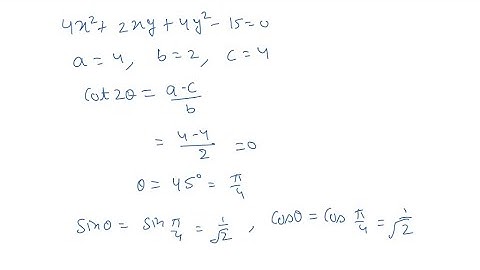 4x² + 2xy + 4y² - 15 = 0
a = 4, b = 2, c = 4
Cot 2θ = (a-c)/b
= (4-4)/2 = 0
θ = 45° = π/4
Sin θ = Sin π/4 = 1/√2, Cos θ = Cos π/4 = 1/√2